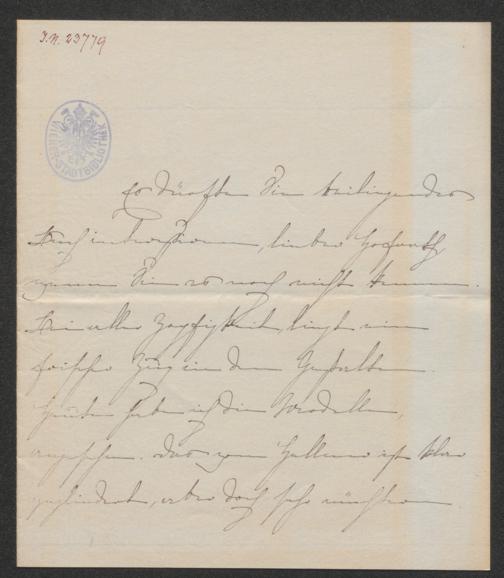 J.N. 23779
WIENER STADTBIBLIOTHEK
Es dürften Sie beiliegendes
Buch interessieren, lieber Hofrath
wenn Sie es noch nicht kennen.
Bei aller liegt ein
frischer Zug in den Gestalten.
Heute habe ich die Modelle,
angesehen. Das von Hellmer ist klar
gegliedert, aber doch sehr nüchtern